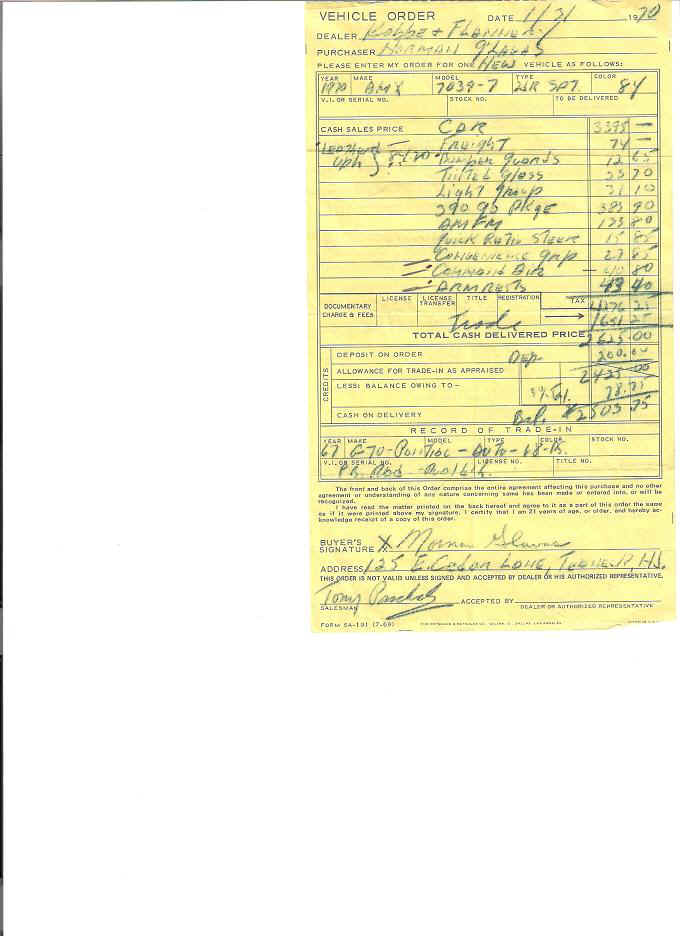 VEHICLE ORDER DATE 1/31 1970
DEALER & 
PURCHASER NORMAN
PLEASE ENTER MY ORDER FOR ONE NEW VEHICLE AS FOLLOWS:
YEAR MAKE MODEL TYPE COLOR
1970 AMX 7039-7 2DR SPT. 84
V.I. OR SERIAL NO. STOCK NO. TO BE DELIVERED
CASH SALES PRICE CAR 3395 —
Freight 74 —
Leather Uph } 84.20 Bumper guards 12 65
Tinted glass 35 70
Light group 31 10
390 go Pkge 383 90
AM FM 133 80
Quick Ratio Steer 15 85
Convenience grp 27 85
Command Air 40 80
ARMRESTS 43 40
DOCUMENTARY CHARGE & FEES LICENSE LICENSE TRANSFER TITLE REGISTRATION TAX
4276 25
Trade 1651 25
TOTAL CASH DELIVERED PRICE 2625 00
CREDITS
DEPOSIT ON ORDER Dep. 200.00
ALLOWANCE FOR TRADE-IN AS APPRAISED 2425 00
LESS: BALANCE OWING TO - 78.75
CASH ON DELIVERY Bal. $2503 75
RECORD OF TRADE-IN
YEAR MAKE MODEL TYPE COLOR STOCK NO.
67 GTO-Pontiac - Auto -
V.I. OR SERIAL NO. LICENSE NO. TITLE NO.
The front and back of this Order comprise the entire agreement affecting this purchase and no other
agreement or understanding of any nature concerning same has been made or entered into, or will be
recognized.
I have read the matter printed on the back hereof and agree to it as a part of this order the same
as if it were printed above my signature. I certify that I am 21 years of age, or older, and hereby ac-
knowledge receipt of a copy of this order.
BUYER'S SIGNATURE X Norman
ADDRESS 125 E. Cedar Lane, NJ.
THIS ORDER IS NOT VALID UNLESS SIGNED AND ACCEPTED BY DEALER OR HIS AUTHORIZED REPRESENTATIVE.
Tony ACCEPTED BY
SALESMAN DEALER OR AUTHORIZED REPRESENTATIVE
FORM SA-191 (7-69)